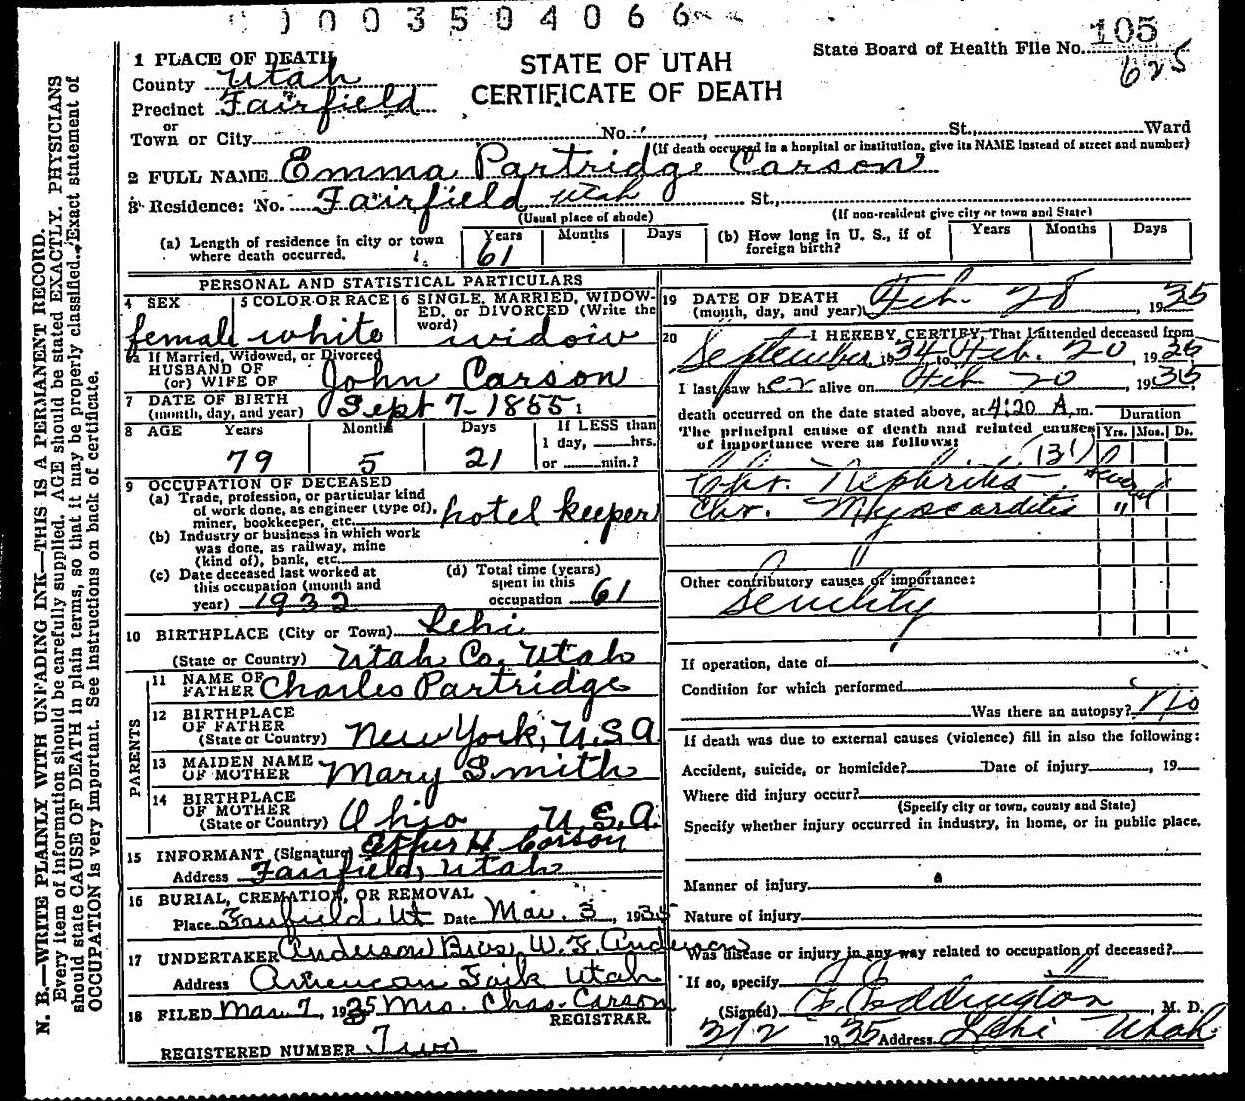 003504066
105
State Board of Health File No.
625
STATE OF UTAH
CERTIFICATE OF DEATH
1 PLACE OF DEATH
County Utah
Precinct Fairfield
or
Town or City No. St., Ward
(If death occured in a hospital or institution, give its NAME instead of street and number)
2 FULL NAME Emma Partridge Carson
3 Residence: No. Fairfield Utah St.,
(Usual place of abode) (If non-resident give city or town and State)
(a) Length of residence in city or town where death occurred. Years 61 Months Days
(b) How long in U. S., if of foreign birth? Years Months Days
PERSONAL AND STATISTICAL PARTICULARS
4 SEX female
5 COLOR OR RACE white
6 SINGLE, MARRIED, WIDOWED, or DIVORCED (Write the word) widow
If Married, Widowed, or Divorced
HUSBAND OF
(or) WIFE OF John Carson
7 DATE OF BIRTH
(month, day, and year) Sept 7-1855
8 AGE Years 79 Months 5 Days 21 If LESS than 1 day, hrs. or min.?
9 OCCUPATION OF DECEASED
(a) Trade, profession, or particular kind
of work done, as engineer (type of),
miner, bookkeeper, etc. hotel keeper
(b) Industry or business in which work
was done, as railway, mine
(kind of), bank, etc.
(c) Date deceased last worked at
this occupation (month and
year) 1932
(d) Total time (years)
spent in this
occupation 61
10 BIRTHPLACE (City or Town) Lehi
(State or Country) Utah Co. Utah
PARENTS
11 NAME OF
FATHER Charles Partridge
12 BIRTHPLACE
OF FATHER
(State or Country) New York, U.S.A
13 MAIDEN NAME
OF MOTHER Mary Smith
14 BIRTHPLACE
OF MOTHER
(State or Country) Ohio U.S.A.
15 INFORMANT (Signature) H Carson
Address Fairfield, Utah
16 BURIAL, CREMATION, OR REMOVAL
Place Fairfield Ut Date Mar. 3, 1935
17 UNDERTAKER Anderson Bros, W. F. Anderson
Address American Fork Utah
18 FILED Mar 7, 1935 Mrs. Chas. Carson
REGISTRAR.
REGISTERED NUMBER Two
19 DATE OF DEATH
(month, day, and year) Feb. 28, 1935
20 I HEREBY CERTIFY, That I attended deceased from
September 1934 to Feb. 20, 1935
I last saw her alive on Feb 20, 1935
death occurred on the date stated above, at 4:20 A. m.
The principal cause of death and related causes
of importance were as follows: Duration Yrs. Mos. Ds.
(131)
Chr. Nephritis several
Chr. Myocarditis "
Other contributory causes of importance:
Senility
If operation, date of
Condition for which performed
Was there an autopsy? No
If death was due to external causes (violence) fill in also the following:
Accident, suicide, or homicide? Date of injury , 19
Where did injury occur?
(Specify city or town, county and State)
Specify whether injury occurred in industry, in home, or in public place.
Manner of injury
Nature of injury
Was disease or injury in any way related to occupation of deceased?
If so, specify
(Signed) Eddington, M. D.
3/2 1935 Address Lehi Utah
N. B.—WRITE PLAINLY WITH UNFADING INK—THIS IS A PERMANENT RECORD.
Every item of information should be carefully supplied. AGE should be stated EXACTLY. PHYSICIANS
should state CAUSE OF DEATH in plain terms, so that it may be properly classified. Exact statement of
OCCUPATION is very important. See instructions on back of certificate.